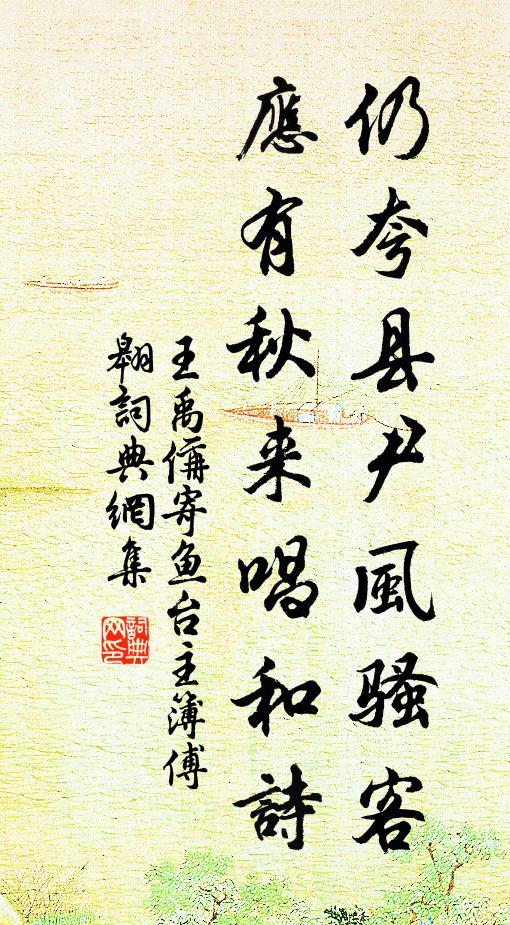 仍夸县尹風骚客
應有秋来唱和詩
王禹偁寄鱼台主簿傅
翱詞典網集
詞典
网印